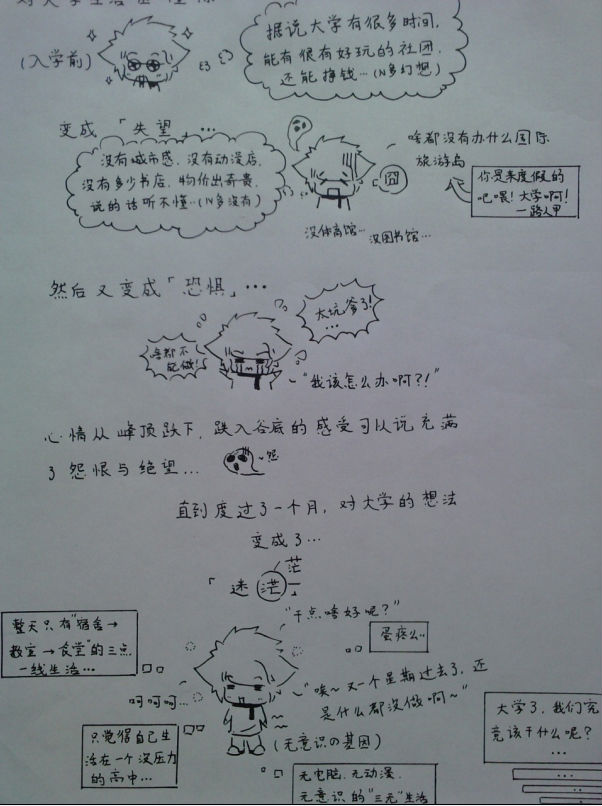 (入学前)
据说大学有很多时间,
能有很有好玩的社团,
还能挣钱…(N多幻想)
变成「失望」…
没有城市感,没有动漫店,
没有多少书店,物价出奇贵,
说的话听不懂…(N多没有)
囧
啥都没有办什么国际
旅游岛
你是来度假的
吧喂!大学啊!
—路人甲
没体育馆…
没图书馆…
然后又变成「恐惧」…
太坑爹了!
…
啥都不
能做!
"我该怎么办啊?!"
心情从峰顶跌下,跌入谷底的感受可以说充满
了怨恨与绝望…
~怨
直到度过了一个月,对大学的想法
变成了…
「迷茫」
茫
"干点啥好呢?"
蛋疼么…
整天只有"宿舍→
教室→食堂"的三点
一线生活…
呵呵呵…
"唉~又一个星期过去了,还
是什么都没做啊~"
(无意识の基因)
只觉得自己生
活在一个没压力
的高中…
无电脑.无动漫.
无意识的"三无"生活
大学了,我们究
竟该干什么呢?
…